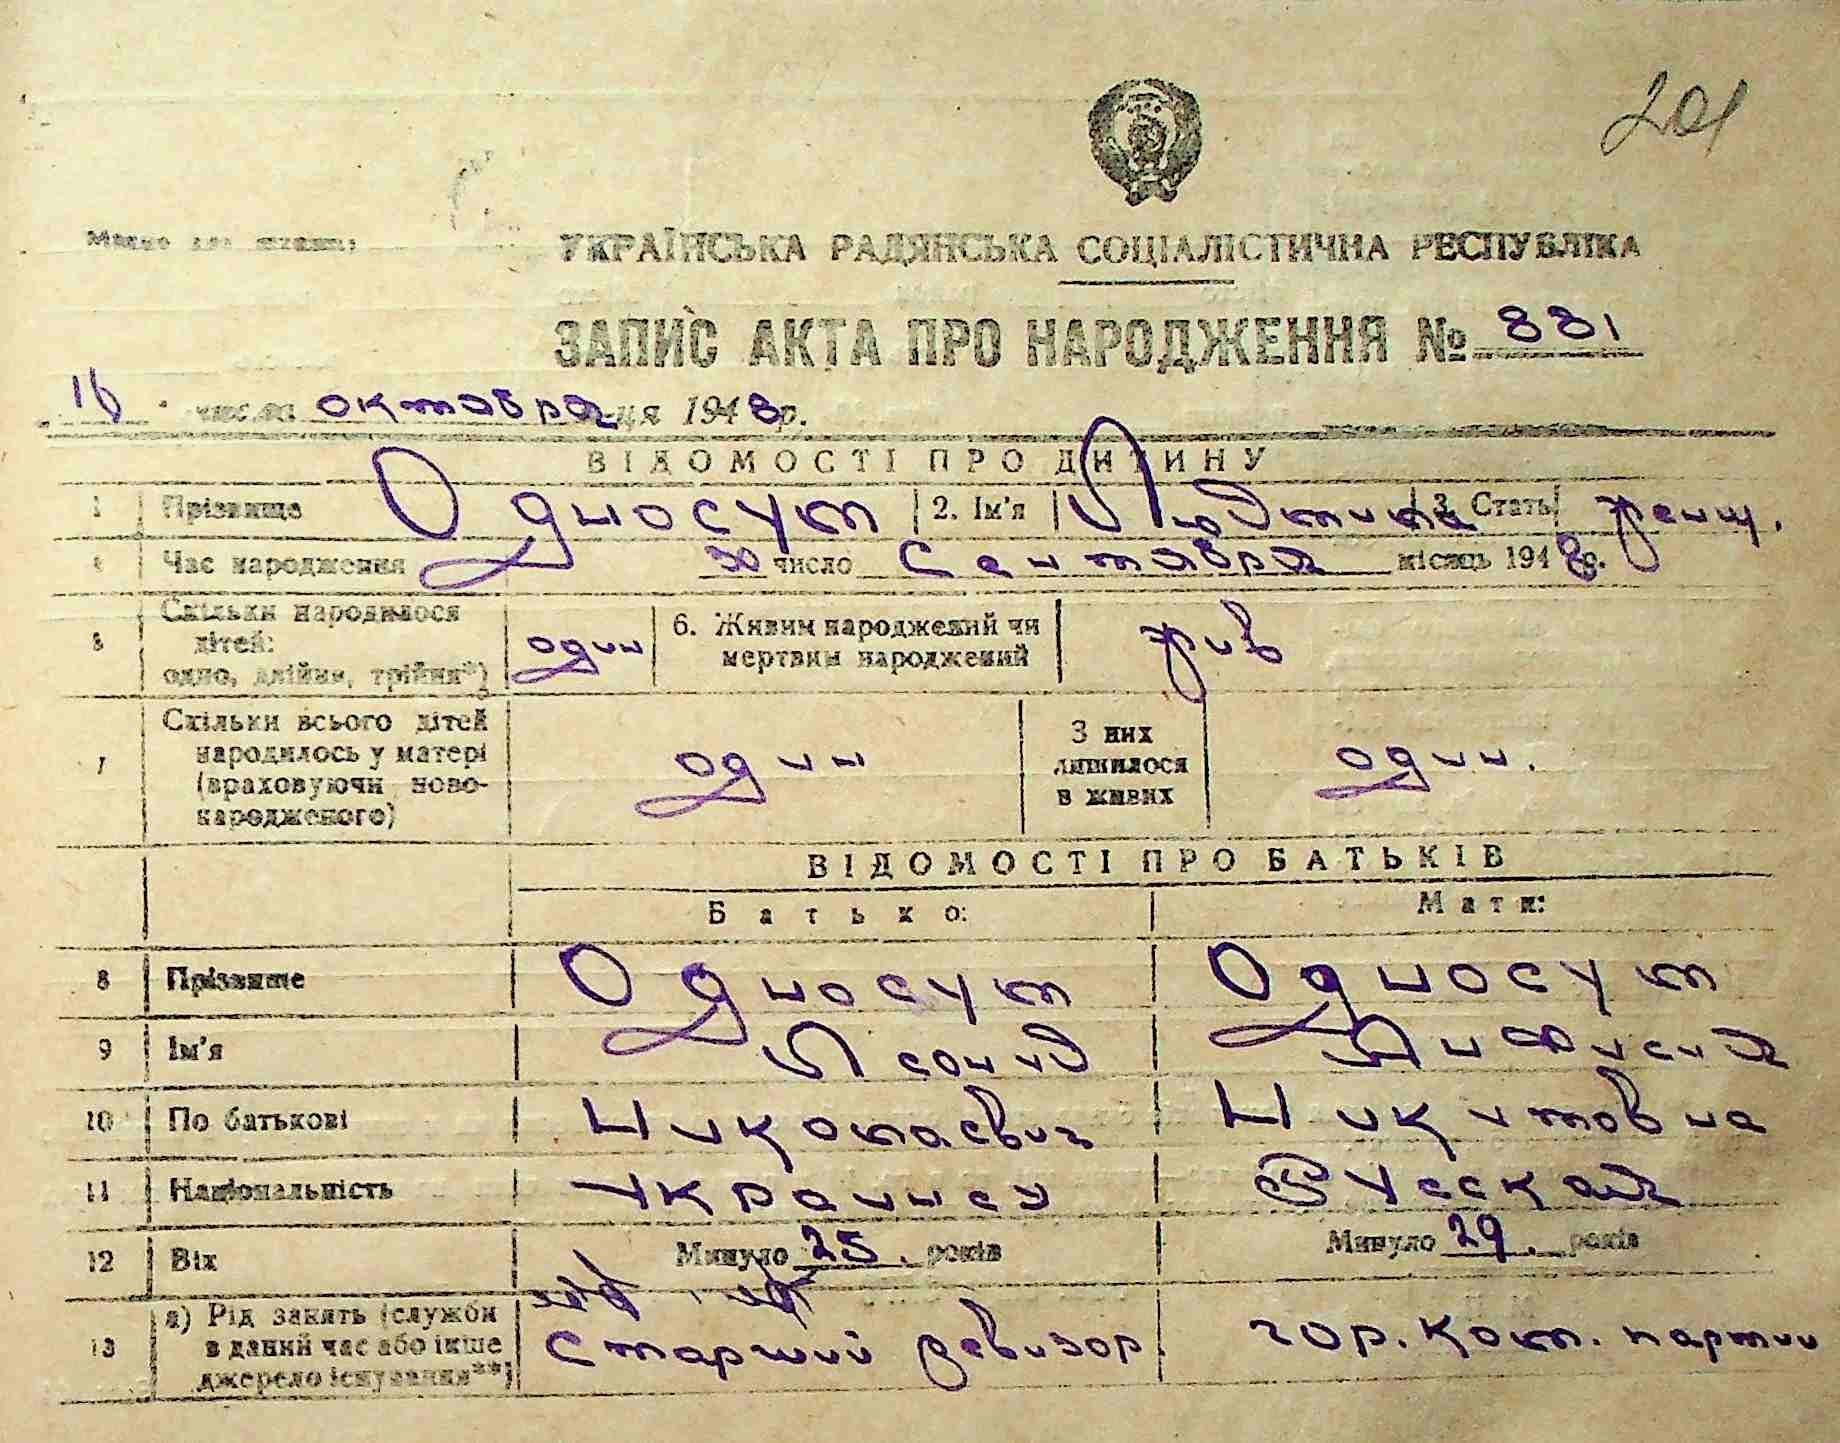 201
Місце для штампу
УКРАЇНСЬКА РАДЯНСЬКА СОЦІАЛІСТИЧНА РЕСПУБЛІКА
ЗАПИС АКТА ПРО НАРОДЖЕННЯ № 881
16 числа октября м-ця 1948 р.
ВІДОМОСТІ ПРО ДИТИНУ
1 Прізвище Односум 2. Ім'я Людмила 3. Стать женщ.
Час народження 30 число Сентября місяць 1948 р.
5 Скільки народилося дітей: одно, двійня, трійня*) один 6. Живим народжений чи мертвим народжений жив
7 Скільки всього дітей народилось у матері (враховуючи новонародженого) один З них лишилося в живих один.
ВІДОМОСТІ ПРО БАТЬКІВ
Батько: Мати:
8 Прізвище Односум Односум
9 Ім'я Леонид
10 По батькові Николаевич Никитовна
11 Національність Украинец Русская
12 Вік Минуло 25. років Минуло 29. років
13 а) Рід занять (служби в даний час або інше джерело існування**) Старший ревизор. гор. ком. партии